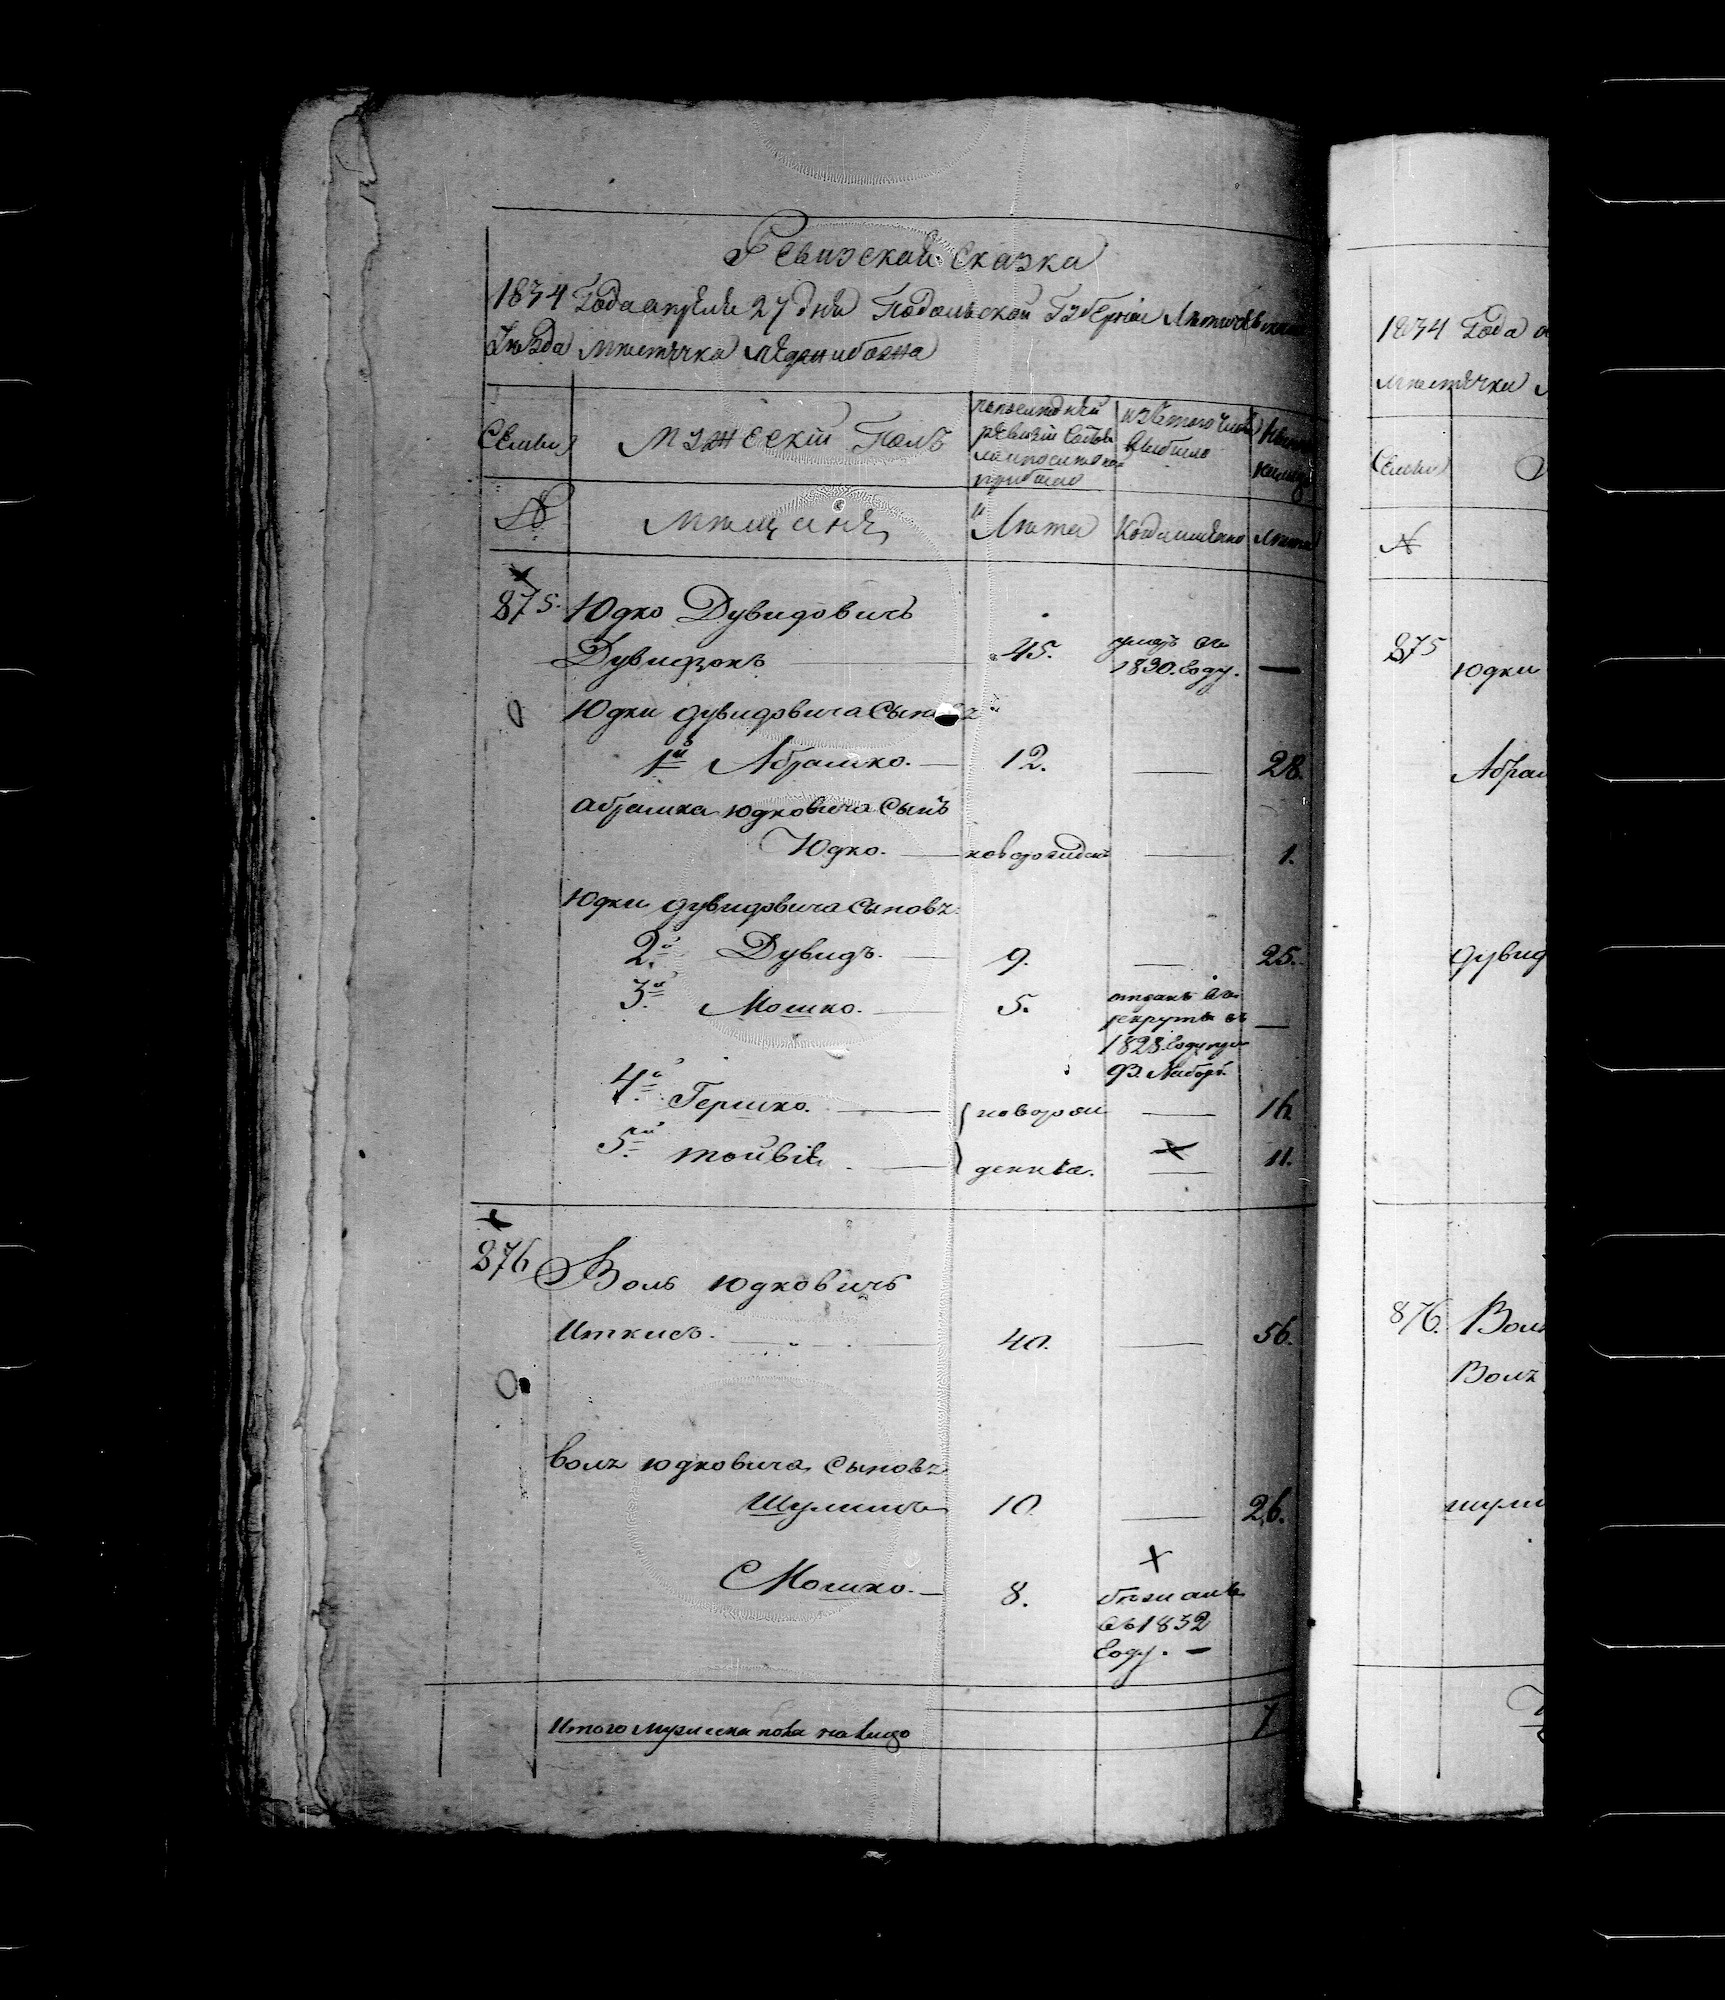 Ревизская сказка
1834 Года апреля 27 дня Подольской Губернии Летичевскаго
Уезда местечка Меджибожа
Семьи
Мужескій Полъ
по последней
ревизіи состояло
и после того
прибыло
изъ того числа
выбыло
Ныне
на лицо
№
Мещане
Лета
Когда именно
Лета
875.
Юдко Дувидовичъ
Дувидзонъ
45.
умеръ въ
1830. году.
Юдки Дувидовича Сыновя
1й Абрамко.
12.
28.
Абрамка Юдковича Сынъ
Юдко.
новорожден
1.
Юдки Дувидовича Сыновя
2й Дувидъ.
9.
25.
3й Мошко.
5.
отданъ въ
рекруты въ
1828. году
93. Наборъ.
4й Гершко.
новорож
16
5й Тойвія
денные.
11.
876
Воль Юдковичъ
Иткисъ.
40.
56.
Воля Юдковича Сыновя
Шулимъ
10.
26.
Мошко.
8.
бежалъ
въ 1832
году.
Итого мужеска пола на лицо
7
1834 Года
местечка
Семьи
№
875
Юдки
Абрам
Дувид
876.
Воля
Воля
шулим